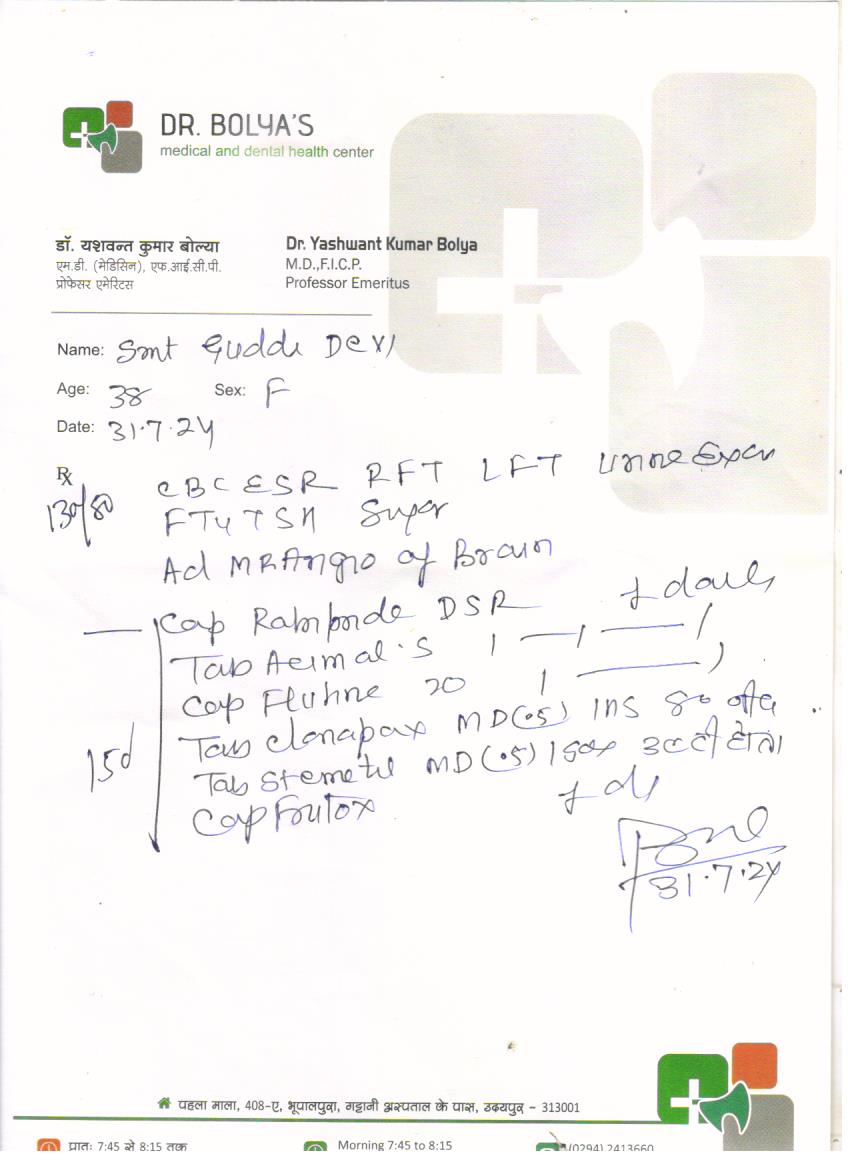 DR. BOLYA'S
medical and dental health center
डॉ. यशवन्त कुमार बोल्या
एम.डी. (मेडिसिन), एफ.आई.सी.पी.
प्रोफेसर एमेरिटस
Dr. Yashwant Kumar Bolya
M.D.,F.I.C.P.
Professor Emeritus
Name: Smt Guddi Devi
Age: 38 Sex: F
Date: 31.7.24
Rx
130/80
CBC ESR RFT LFT Urine Exam
FT4 TSH Sugar
Ad MRAngio of Brain
Cap DSR 1 daily
Tab 1 — 1 — 1
Cap 20 1 — 1
Tab Clonapax MD (.5)
Tab Stemetil MD (.5) उल्टी
Cap
15d
31.7.24
पहला माला, 408-ए, भूपालपुरा, गट्टानी अस्पताल के पास, उदयपुर - 313001
प्रातः 7:45 से 8:15 तक
Morning 7:45 to 8:15
(0294) 2413660